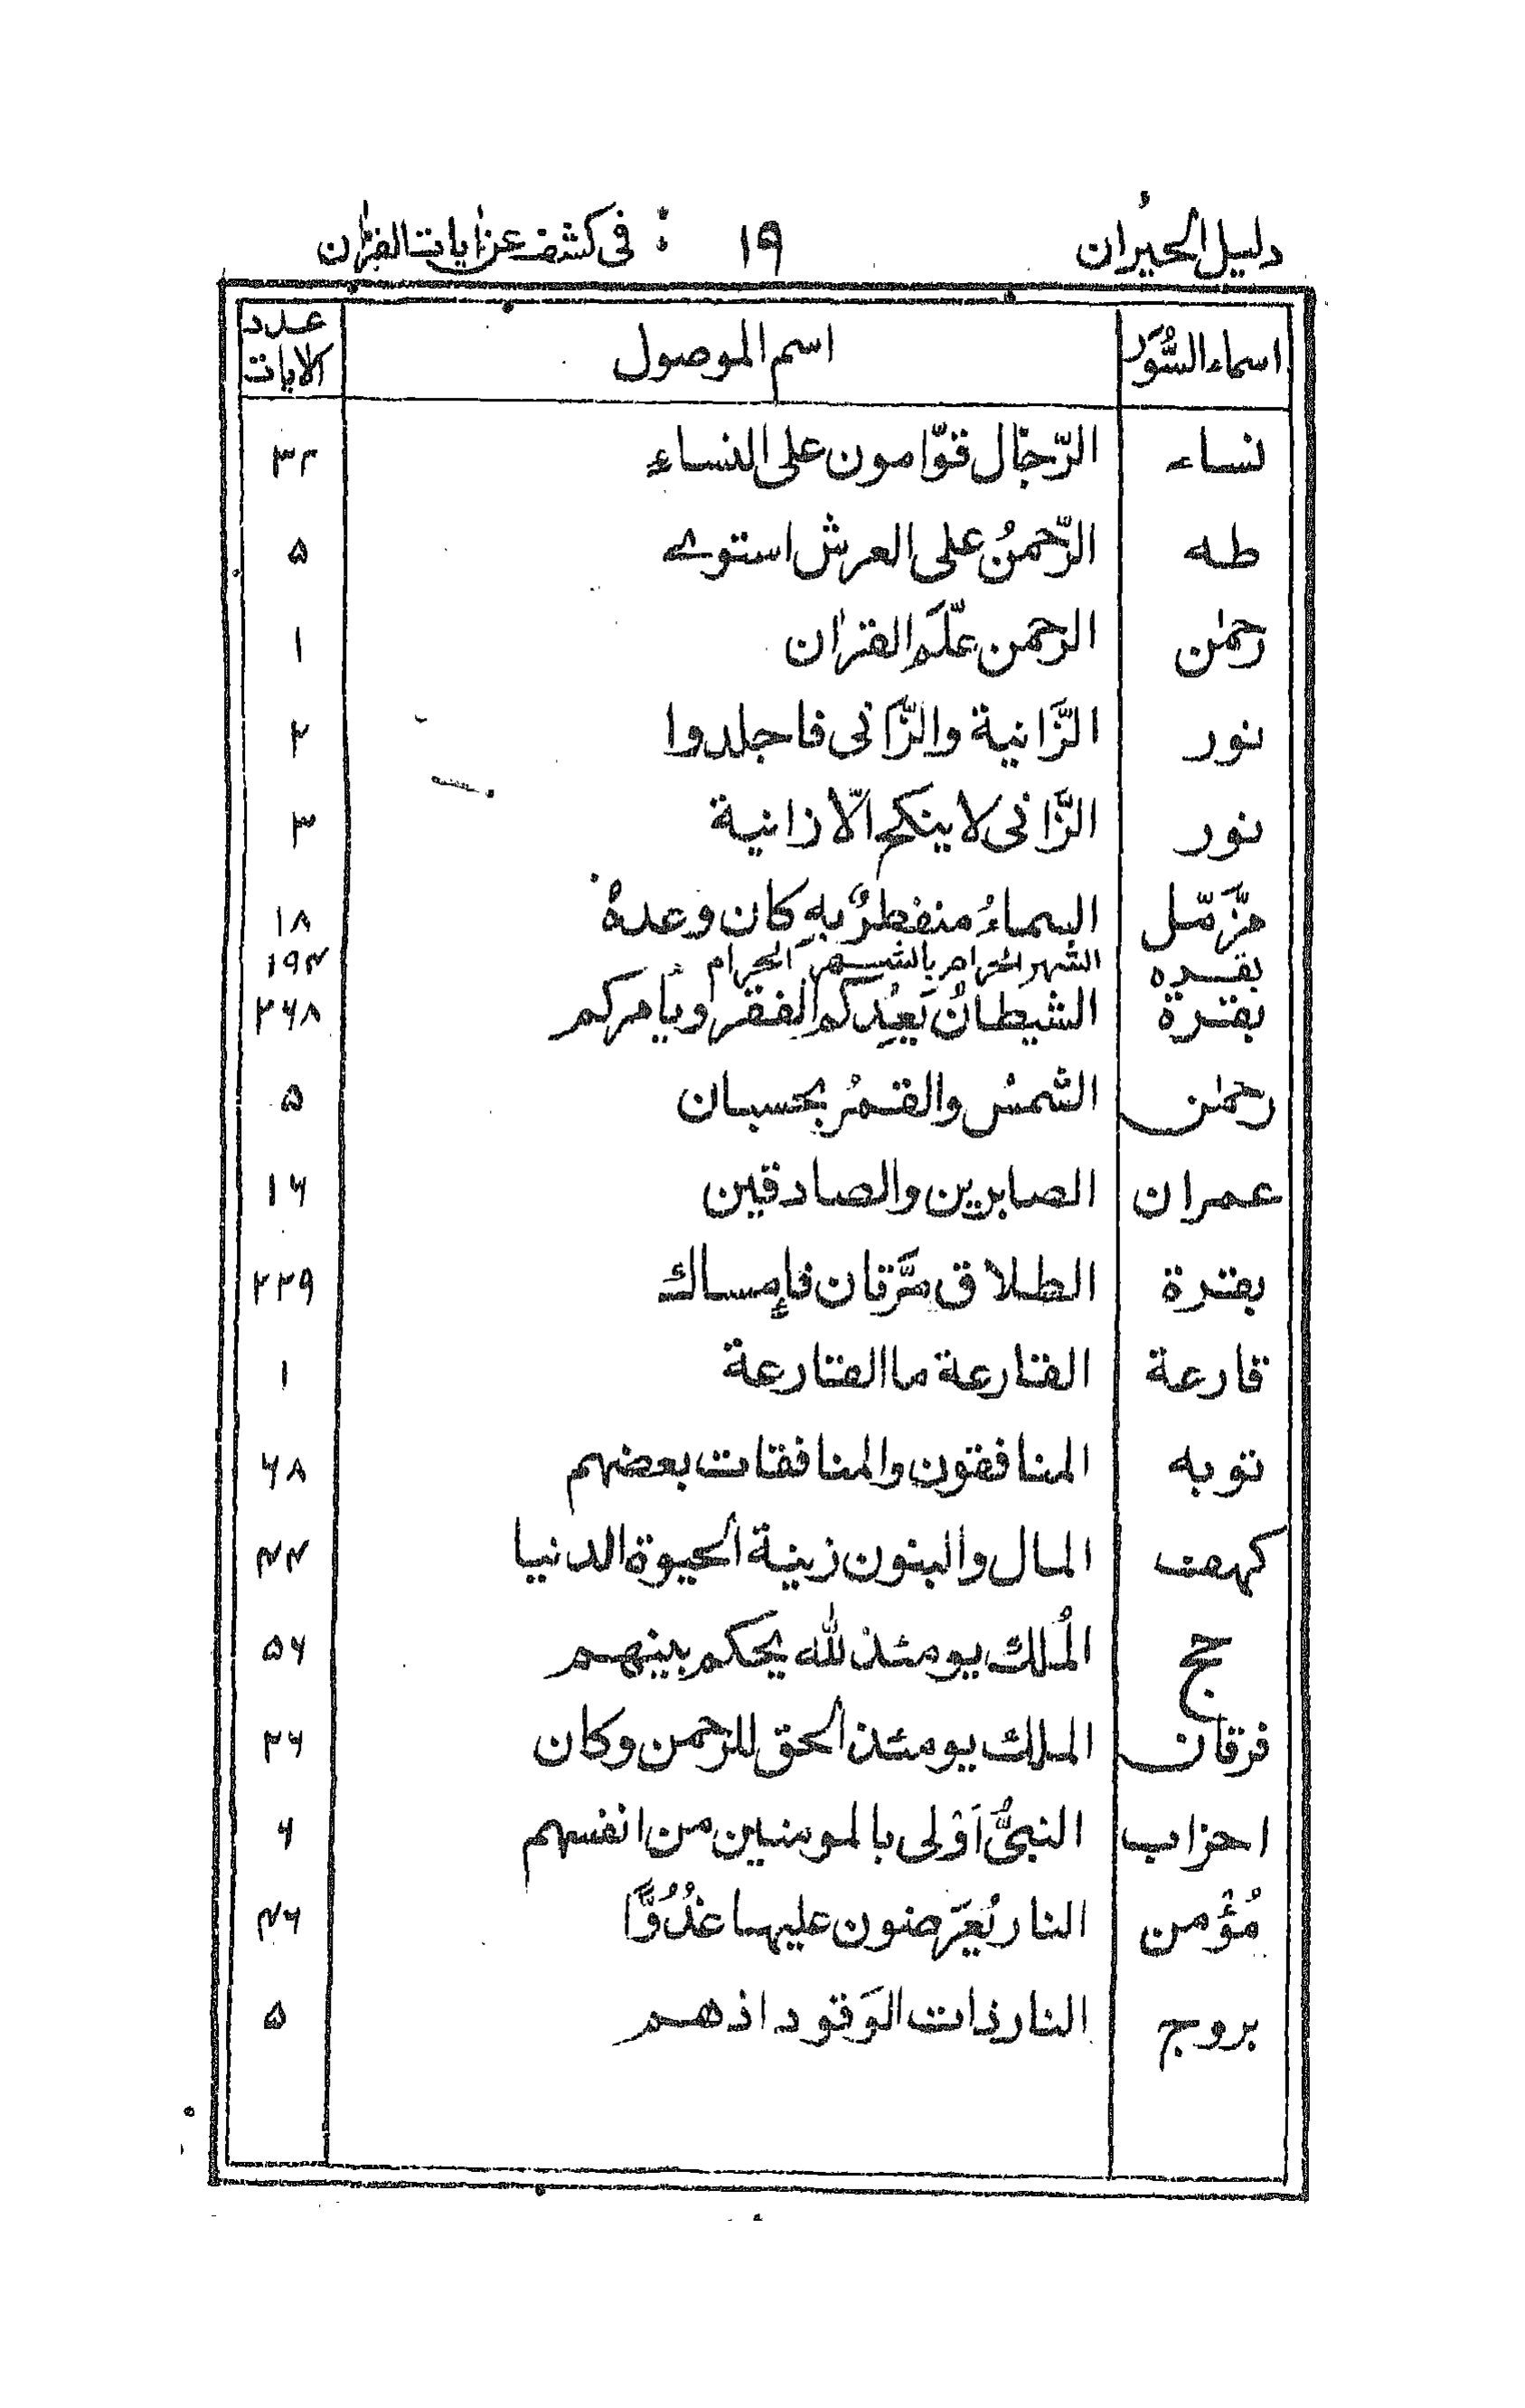 دليل الحيران ١٩ : فى كشف عن اٰيات القراٰن
اسماء السُّوَر اسم الموصول عدد الايات
نساء الرّجال قوّامون على النساءِ
طه الرّحمنُ على العرش استوے ۵
رحمٰن الرحمن علّمَ القراٰن ١
نور الزَّانية والزَّانى فاجلدوا ٢
نور الزَّانى لا ينكح الّا زانية ٣
مزَّمّل السماءُ منفطرٌ بهٖ كان وعدهٗ ١٨
بقره الشهر الحرام بالشهر الحرام ١٩۴
بقرة الشيطانُ يَعِدُكم الفقر ويأمركم ٢۶٨
رحمٰن الشمسُ والقمرُ بحسبان ۵
عمران الصابرين والصادقين ١۶
بقرة الطلاق مَّرتان فإمساك ٢٢٩
قارعة القارعة ما القارعة ١
توبه المنافقون والمنافقات بعضهم ۶٨
كهف المال والبنون زينة الحيوة الدنيا ۴۴
حج المُلك يومئذ لله يحكم بينهم ۵۶
فرقان الملك يومئذ الحق للرحمن وكان ٢۶
احزاب النبىُّ اَوْلى بالمومنين من انفسهم ۶
مُؤمن النار يُعرَضون عليها غدُوًّا ۴۶
بروج النار ذات الوَقود اذ هم ۵